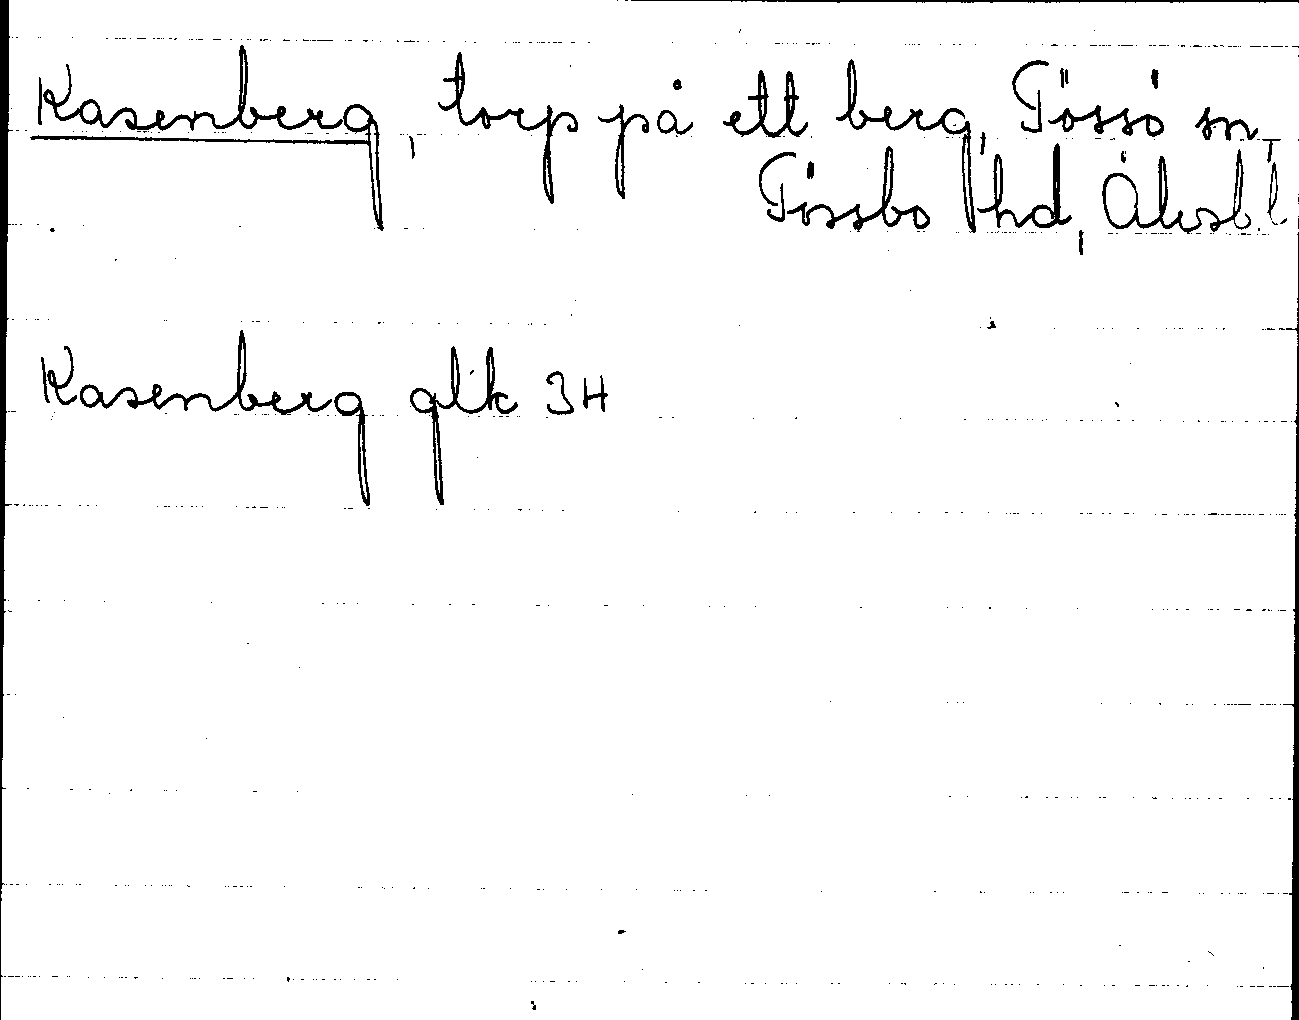 Kasenberg, torp på ett berg, Tössö sn,
Tössbo hd, Älvsb. l
Kasenberg glk 3H